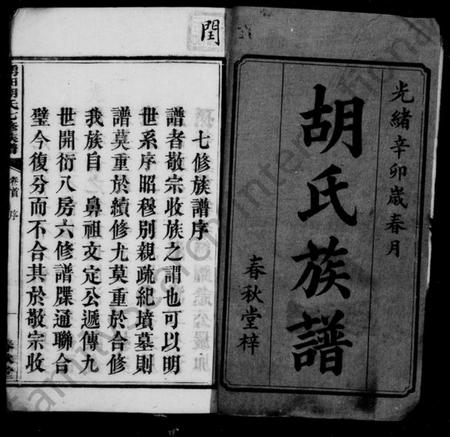 光緒辛卯歲春月
胡氏族譜
春秋堂梓
閏
七修族譜序
譜者敬宗收族之謂也可以明
世系序昭穆別親疏紀墳墓則
譜莫重於續修尤莫重於合修
我族自　鼻祖文定公遞傳九
世開衍八房六修譜牒通聯合
璧今復分而不合其於敬宗收
胡氏七修族譜
卷首　序